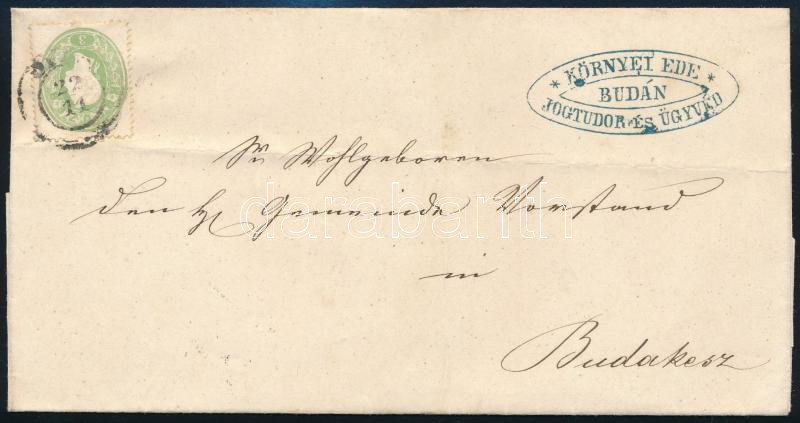 * KÖRNYEI EDE *
BUDÁN
JOGTUDOR ÉS ÜGYVÉD
3
22
11
Sr Wohlgeboren
den H Gemeinde Vorstand
in
Budakesz
darabanth